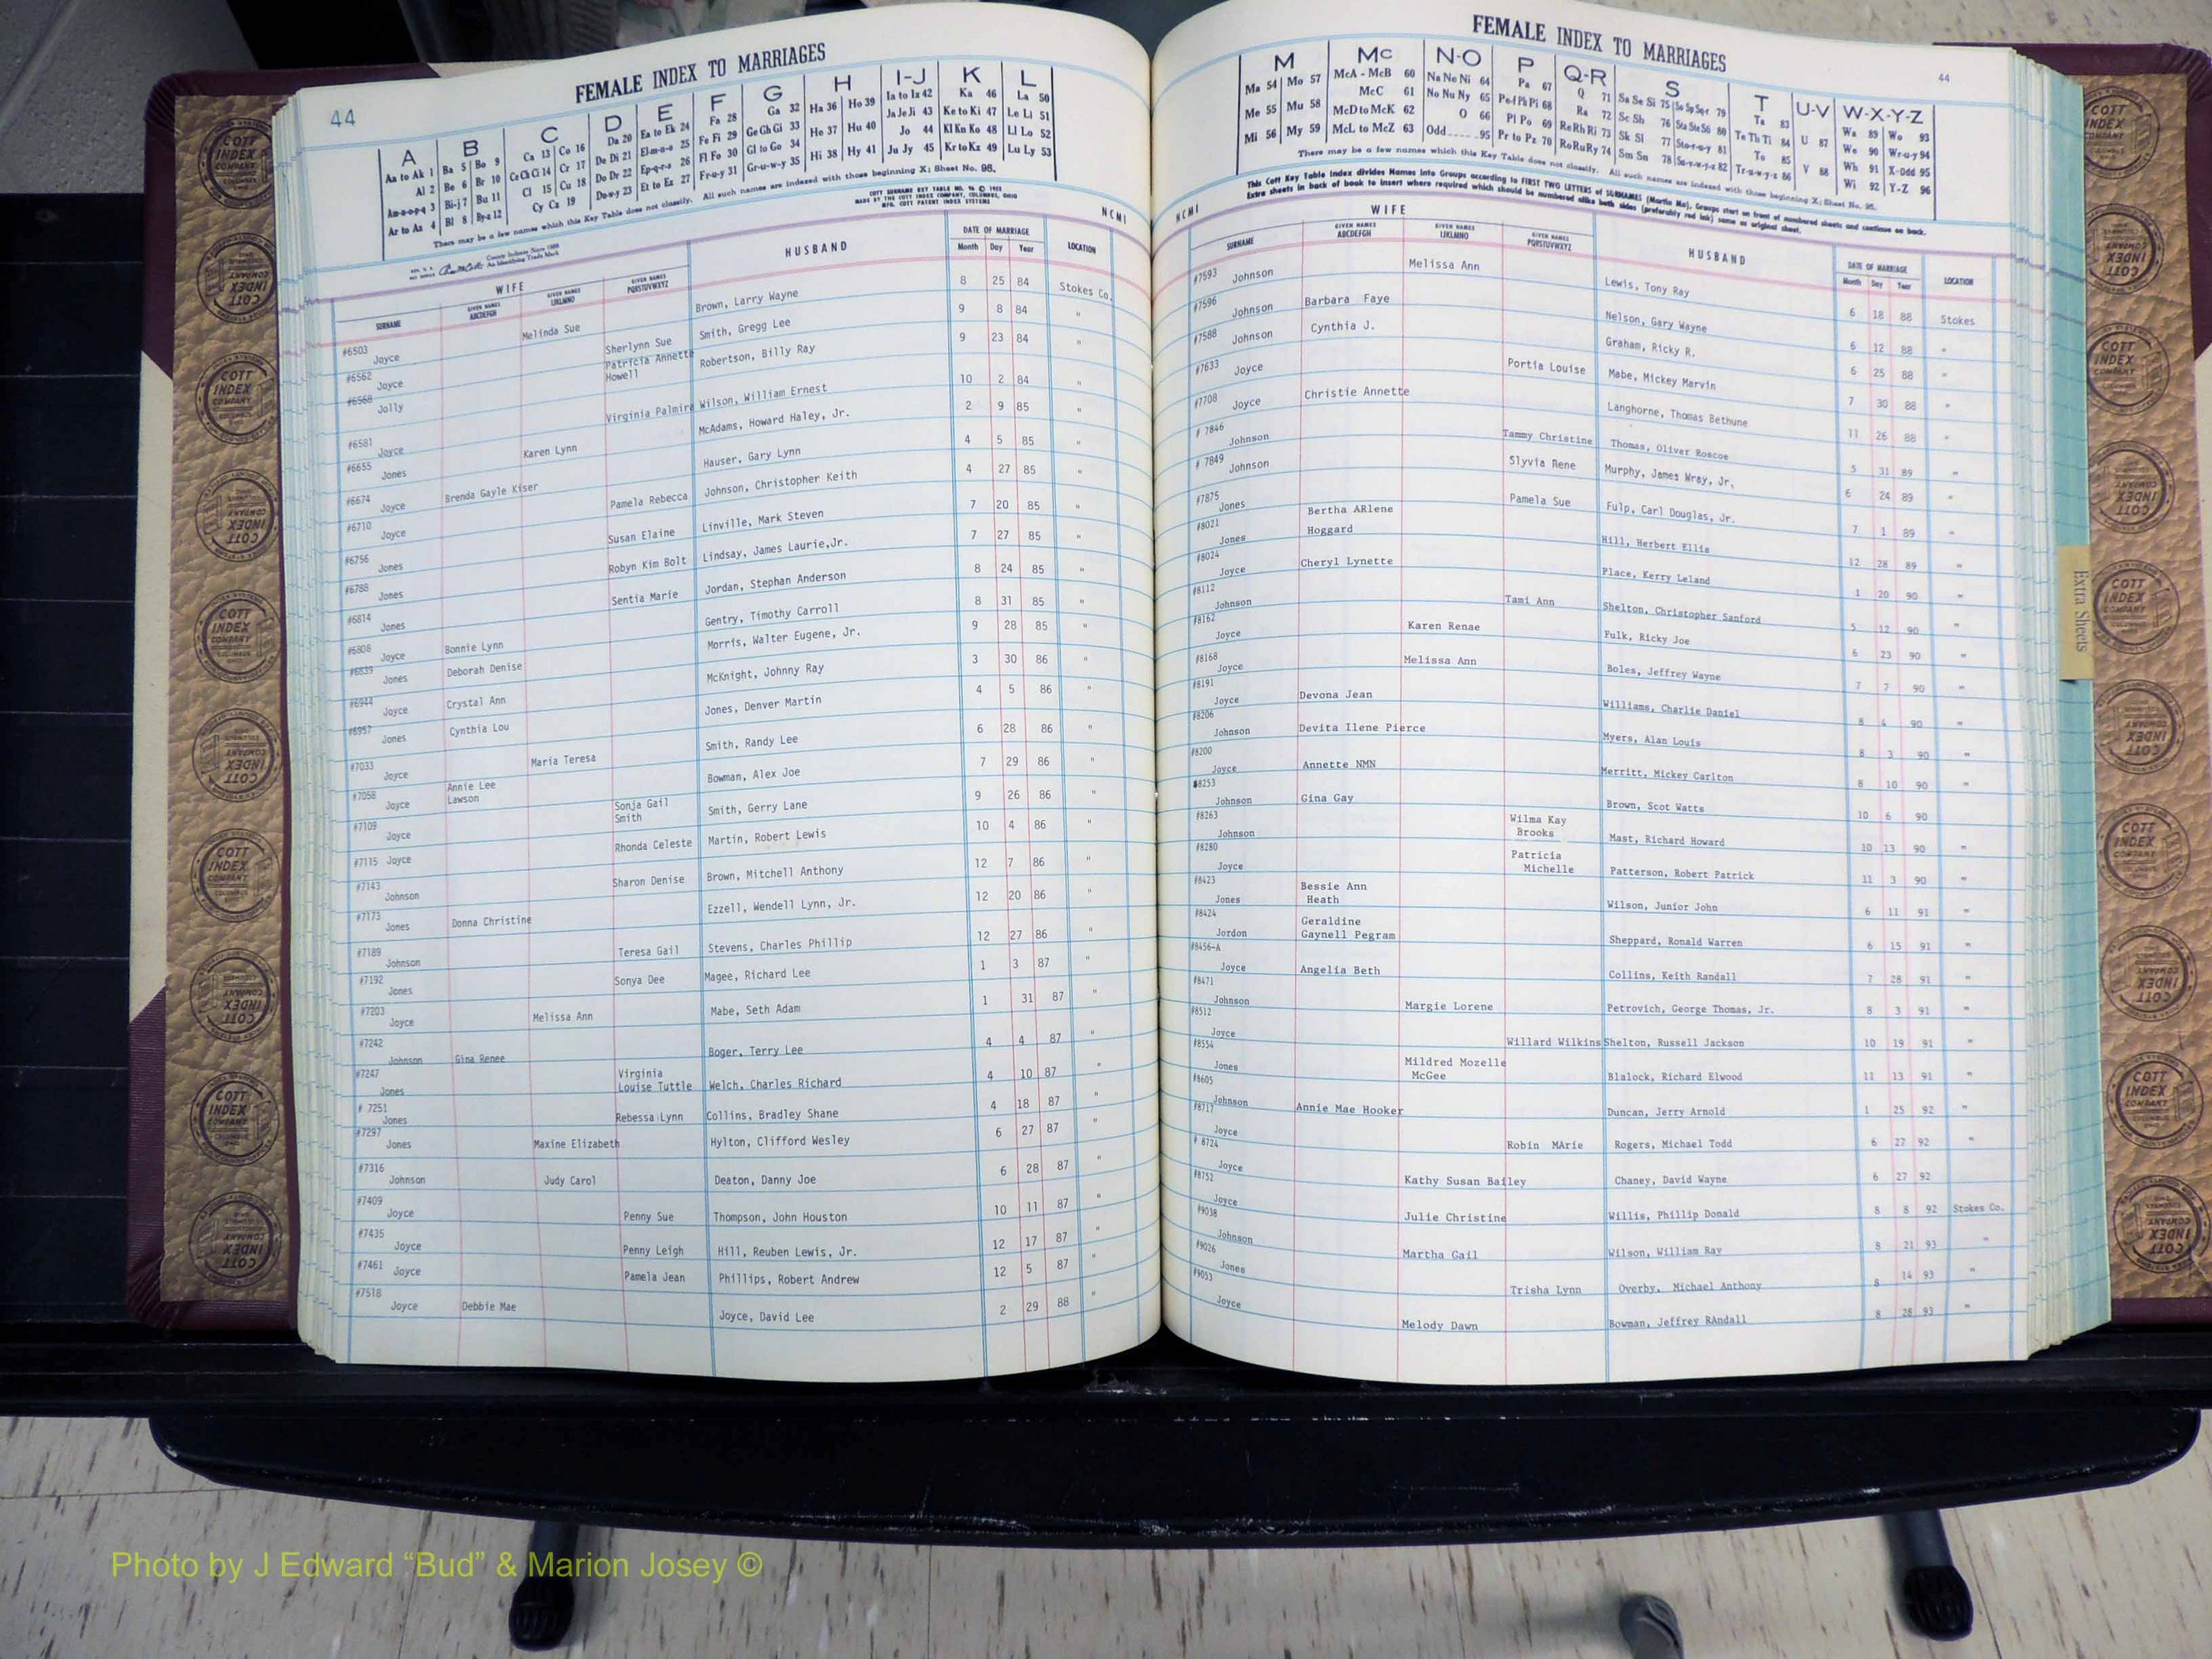 44
FEMALE INDEX TO MARRIAGES
A B C D E F G H I-J K L
Aa to Ak 1 Ba 5 Bo 9 Ca 13 Co 16 Da 20 Ea to Ek 24 Fa 28 Ga 32 Ha 36 Ho 39 Ia to Iz 42 Ka 46 La 50
Al 2 Be 6 Br 10 Ce Ch Ci 14 Cr 17 De Di 21 El-m-n-o 25 Fe Fi 29 Ge Gh Gi 33 He 37 Hu 40 Ja Je Ji 43 Ke to Ki 47 Le Li 51
Am-n-o-p-q 3 Bi-j 7 Bu 11 Cl 15 Cu 18 Do Dr 22 Ep-q-r-s 26 Fl Fo 30 Gl to Go 34 Hi 38 Hy 41 Jo 44 Kl Kn Ko 48 Ll Lo 52
Ar to Az 4 Bl 8 By-z 12 Cy Cz 19 Du-w-y 23 Et to Ez 27 Fr-u-y 31 Gr-u-w-y 35 Ju Jy 45 Kr to Kz 49 Lu Ly 53
There may be a few names which this Key Table does not classify. All such names are indexed with those beginning X; Sheet No. 95.
NCMI
WIFE HUSBAND DATE OF MARRIAGE LOCATION
SURNAME GIVEN NAMES ABCDEFGH GIVEN NAMES IJKLMNO GIVEN NAMES PQRSTUVWXYZ Month Day Year
#6503 Joyce Melinda Sue Brown, Larry Wayne 8 25 84 Stokes Co.
#6562 Joyce Sherlynn Sue Smith, Gregg Lee 9 8 84 "
#6568 Jolly Patricia Annette Howell Robertson, Billy Ray 9 23 84 "
#6581 Joyce Virginia Palmira Wilson, William Ernest 10 2 84 "
#6655 Jones Karen Lynn McAdams, Howard Haley, Jr. 2 9 85 "
#6674 Joyce Brenda Gayle Kiser Hauser, Gary Lynn 4 5 85 "
#6710 Joyce Pamela Rebecca Johnson, Christopher Keith 4 27 85 "
#6756 Jones Susan Elaine Linville, Mark Steven 7 20 85 "
#6788 Jones Robyn Kim Bolt Lindsay, James Laurie,Jr. 7 27 85 "
#6814 Jones Sentia Marie Jordan, Stephan Anderson 8 24 85 "
#6808 Joyce Bonnie Lynn Gentry, Timothy Carroll 8 31 85 "
#6839 Jones Deborah Denise Morris, Walter Eugene, Jr. 9 28 85 "
#6944 Joyce Crystal Ann McKnight, Johnny Ray 3 30 86 "
#6957 Jones Cynthia Lou Jones, Denver Martin 4 5 86 "
#7033 Joyce Maria Teresa Smith, Randy Lee 6 28 86 "
#7058 Joyce Annie Lee Lawson Bowman, Alex Joe 7 29 86 "
#7109 Joyce Sonja Gail Smith Smith, Gerry Lane 9 26 86 "
#7115 Joyce Rhonda Celeste Martin, Robert Lewis 10 4 86 "
#7143 Johnson Sharon Denise Brown, Mitchell Anthony 12 7 86 "
#7173 Jones Donna Christine Ezzell, Wendell Lynn, Jr. 12 20 86 "
#7189 Johnson Teresa Gail Stevens, Charles Phillip 12 27 86 "
#7192 Jones Sonya Dee Magee, Richard Lee 1 3 87 "
#7203 Joyce Melissa Ann Mabe, Seth Adam 1 31 87 "
#7242 Johnson Gina Renee Boger, Terry Lee 4 4 87 "
#7247 Jones Virginia Louise Tuttle Welch, Charles Richard 4 10 87 "
# 7251 Jones Rebessa Lynn Collins, Bradley Shane 4 18 87 "
#7297 Jones Maxine Elizabeth Hylton, Clifford Wesley 6 27 87 "
#7316 Johnson Judy Carol Deaton, Danny Joe 6 28 87 "
#7409 Joyce Penny Sue Thompson, John Houston 10 11 87 "
#7435 Joyce Penny Leigh Hill, Reuben Lewis, Jr. 12 17 87 "
#7461 Joyce Pamela Jean Phillips, Robert Andrew 12 5 87 "
#7518 Joyce Debbie Mae Joyce, David Lee 2 29 88 "
FEMALE INDEX TO MARRIAGES
44
M Mc N-O P Q-R S T U-V W-X-Y-Z
Ma 54 Mo 57 McA - McB 60 Na Ne Ni 64 Pa 67 Q 71 Sa Se Si 75 So Sp Sq-r 79 Ta 83 U 87 Wa 89 Wo 93
Me 55 Mu 58 McC 61 No Nu Ny 65 Pe-f Ph Pi 68 Ra 72 Sc Sh 76 Sta Ste Sti 80 Te Th Ti 84 V 88 We 90 Wr-u-y 94
Mi 56 My 59 McD to McK 62 O 66 Pl Po 69 Re Rh Ri 73 Sk Sl 77 Sto-r-u-y 81 To 85 Wh 91 X-Odd 95
McL to McZ 63 Odd 95 Pr to Pz 70 Ro Ru Ry 74 Sm Sn 78 Su-v-w-y-z 82 Tr-u-w-y-z 86 Wi 92 Y-Z 96
There may be a few names which this Key Table does not classify. All such names are indexed with those beginning X; Sheet No. 95.
This Cott Key Table Index divides Names into Groups according to FIRST TWO LETTERS of SURNAMES (Martin Ma). Groups start on front of numbered sheets and continue on back.
Extra sheets in back of book to insert where required which should be numbered alike both sides (preferably red ink) same as original sheet.
NCMI
WIFE HUSBAND DATE OF MARRIAGE LOCATION
SURNAME GIVEN NAMES ABCDEFGH GIVEN NAMES IJKLMNO GIVEN NAMES PQRSTUVWXYZ Month Day Year
#7593 Johnson Melissa Ann Lewis, Tony Ray 6 18 88 Stokes
#7596 Johnson Barbara Faye Nelson, Gary Wayne 6 12 88 "
#7588 Johnson Cynthia J. Graham, Ricky R. 6 25 88 "
#7633 Joyce Portia Louise Mabe, Mickey Marvin 7 30 88 "
#7708 Joyce Christie Annette Langhorne, Thomas Bethune 11 26 88 "
# 7846 Johnson Tammy Christine Thomas, Oliver Roscoe 5 31 89 "
# 7849 Johnson Slyvia Rene Murphy, James Wray, Jr. 6 24 89 "
#7875 Jones Pamela Sue Fulp, Carl Douglas, Jr. 7 1 89 "
#8021 Jones Bertha ARlene Hoggard Hill, Herbert Ellis 12 28 89 "
#8024 Joyce Cheryl Lynette Place, Kerry Leland 1 20 90 "
#8112 Johnson Tami Ann Shelton, Christopher Sanford 5 12 90 "
#8162 Joyce Karen Renae Fulk, Ricky Joe 6 23 90 "
#8168 Joyce Melissa Ann Boles, Jeffrey Wayne 7 7 90 "
#8191 Joyce Devona Jean Williams, Charlie Daniel 8 4 90 "
#8206 Johnson Devita Ilene Pierce Myers, Alan Louis 8 3 90 "
#8200 Joyce Annette NMN Merritt, Mickey Carlton 8 10 90 "
#8253 Johnson Gina Gay Brown, Scot Watts 10 6 90
#8263 Johnson Wilma Kay Brooks Mast, Richard Howard 10 13 90 "
#8280 Joyce Patricia Michelle Patterson, Robert Patrick 11 3 90 "
#8423 Jones Bessie Ann Heath Wilson, Junior John 6 11 91 "
#8424 Jordon Geraldine Gaynell Pegram Sheppard, Ronald Warren 6 15 91 "
#8456-A Joyce Angelia Beth Collins, Keith Randall 7 28 91 "
#8471 Johnson Margie Lorene Petrovich, George Thomas, Jr. 8 3 91 "
#8512 Joyce Willard Wilkins Shelton, Russell Jackson 10 19 91 "
#8554 Jones Mildred Mozelle McGee Blalock, Richard Elwood 11 13 91 "
#8605 Johnson Annie Mae Hooker Duncan, Jerry Arnold 1 25 92 "
#8717 Joyce Robin MArie Rogers, Michael Todd 6 27 92 "
# 8724 Joyce Kathy Susan Bailey Chaney, David Wayne 6 27 92
#8752 Joyce Julie Christine Willis, Phillip Donald 8 8 92 Stokes Co.
#9038 Johnson Martha Gail Wilson, William Ray 8 21 93 "
#9026 Jones Trisha Lynn Overby, Michael Anthony 8 14 93 "
#9053 Joyce Melody Dawn Bowman, Jeffrey RAndall 8 28 93 "
Extra Sheets
COTT INDEX COMPANY
Photo by J Edward “Bud” & Marion Josey ©